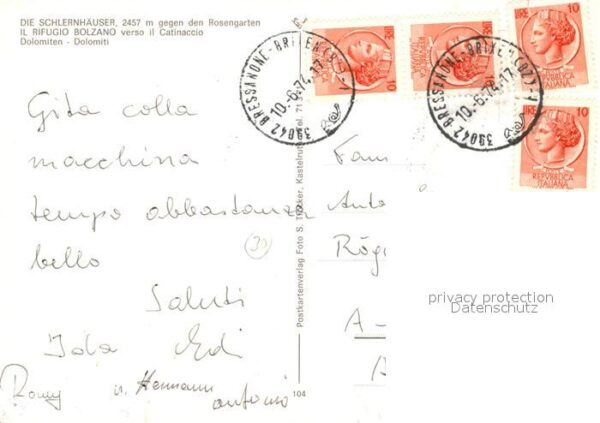 DIE SCHLERNHÄUSER, 2457 m gegen den Rosengarten
IL RIFUGIO BOLZANO verso il Catinaccio
Dolomiten - Dolomiti
Gita colla
macchina
tempo abbastanza
bello
Saluti
Ida Edi
Romy u. Hermann
antonio
20
Postkartenverlag Foto S. Trocker, Kastelrut
104
39042 BRESSANONE-BRIXEN
10.-6.74.-17
39042 BRESSANONE-BRIXEN (BZ)
10.-6.74.-17
LIRE 10
REPUBBLICA
ITALIANA
LIRE 10
REPUBBLICA
ITALIANA
LIRE 10
LIRE 10
Fam
Anto
Rög
A-
privacy protection
Datenschutz